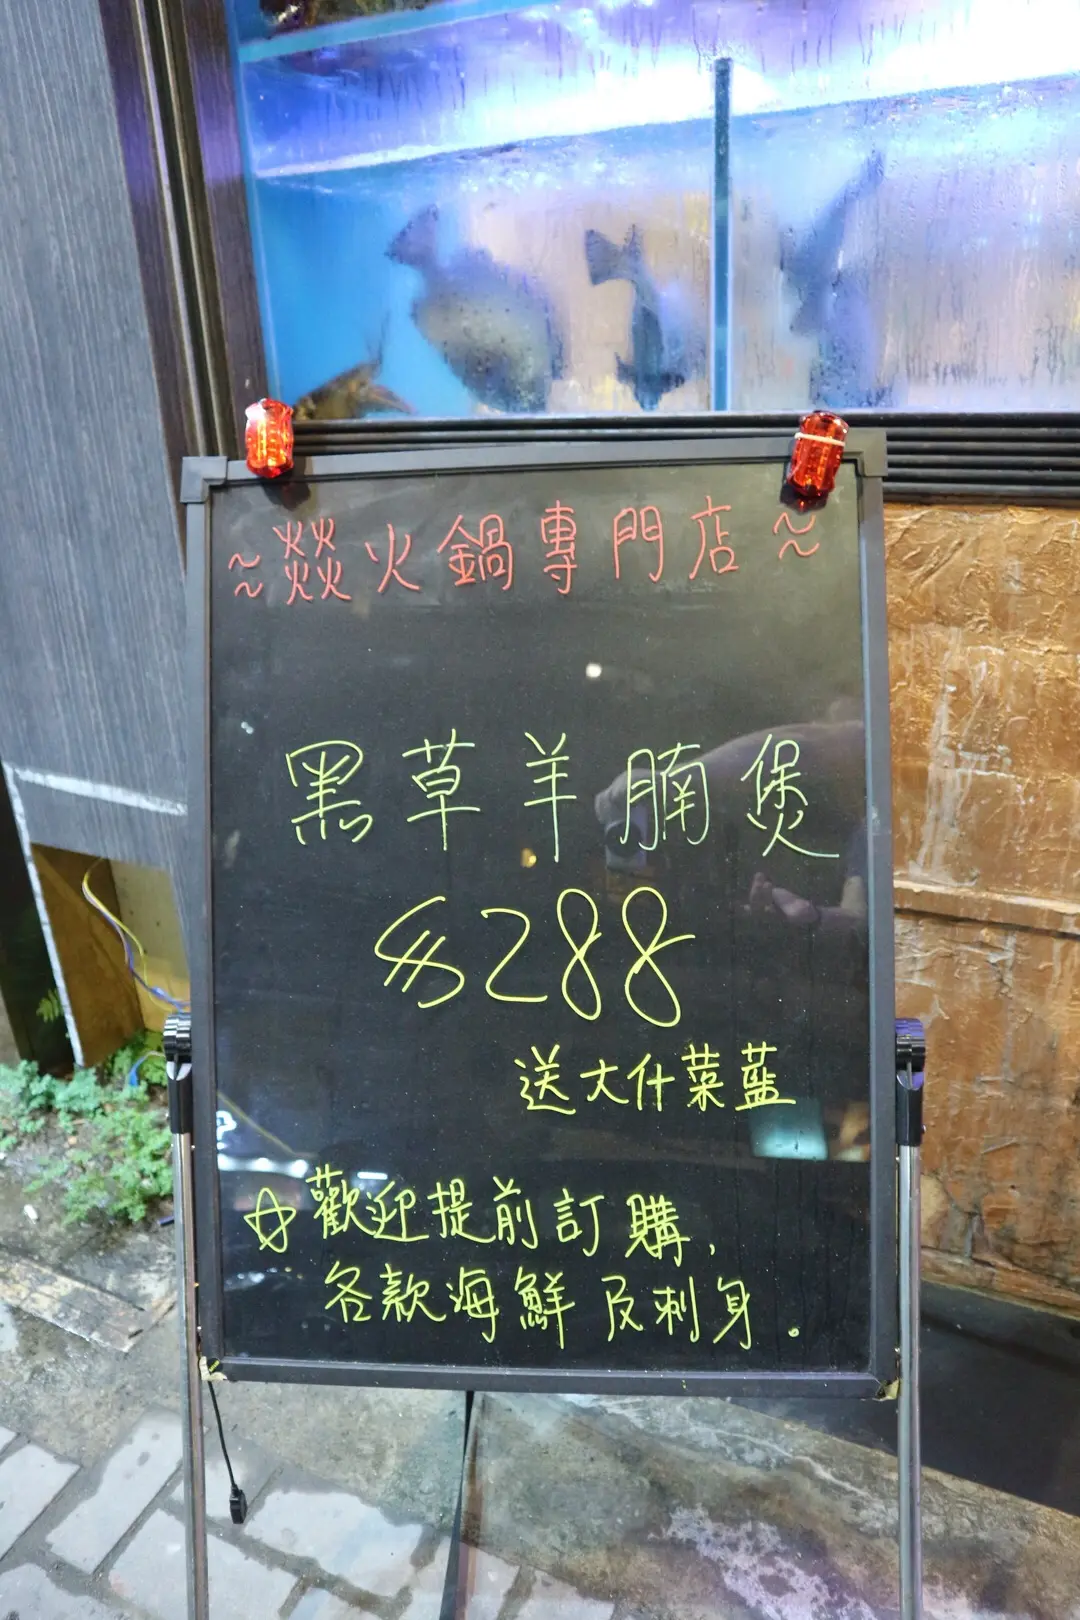 ~燚火鍋專門店~
黑草羊腩煲
$288
送大什菜藍
☆歡迎提前訂購,
各款海鮮及刺身。